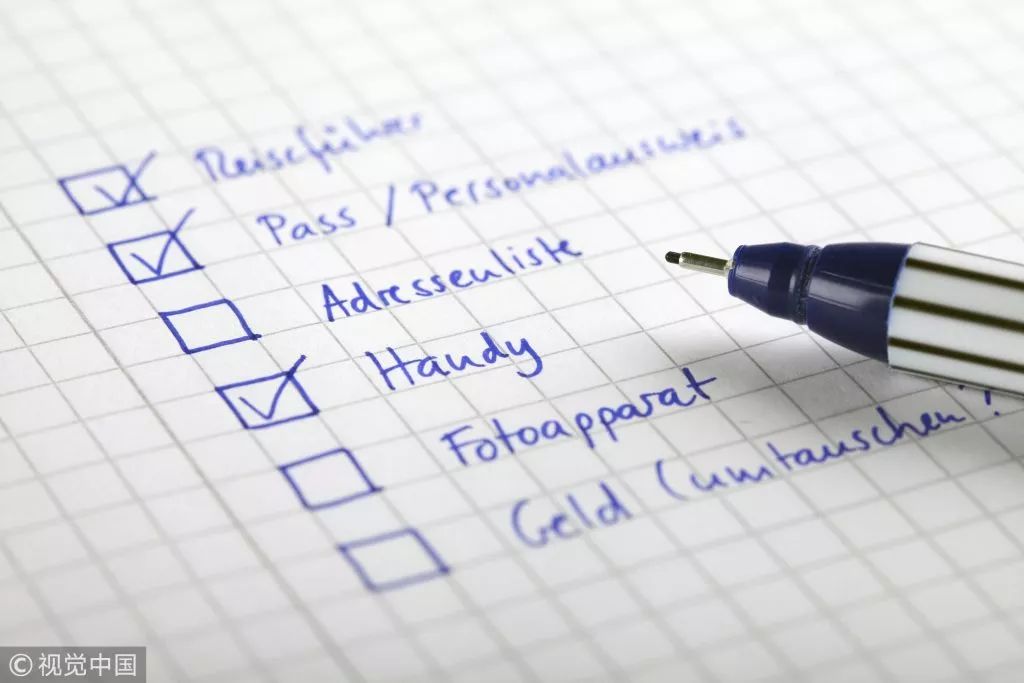 Reiseführer
Pass / Personalausweis
Adressenliste
Handy
Fotoapparat
Geld (umtauschen!
© 视觉中国